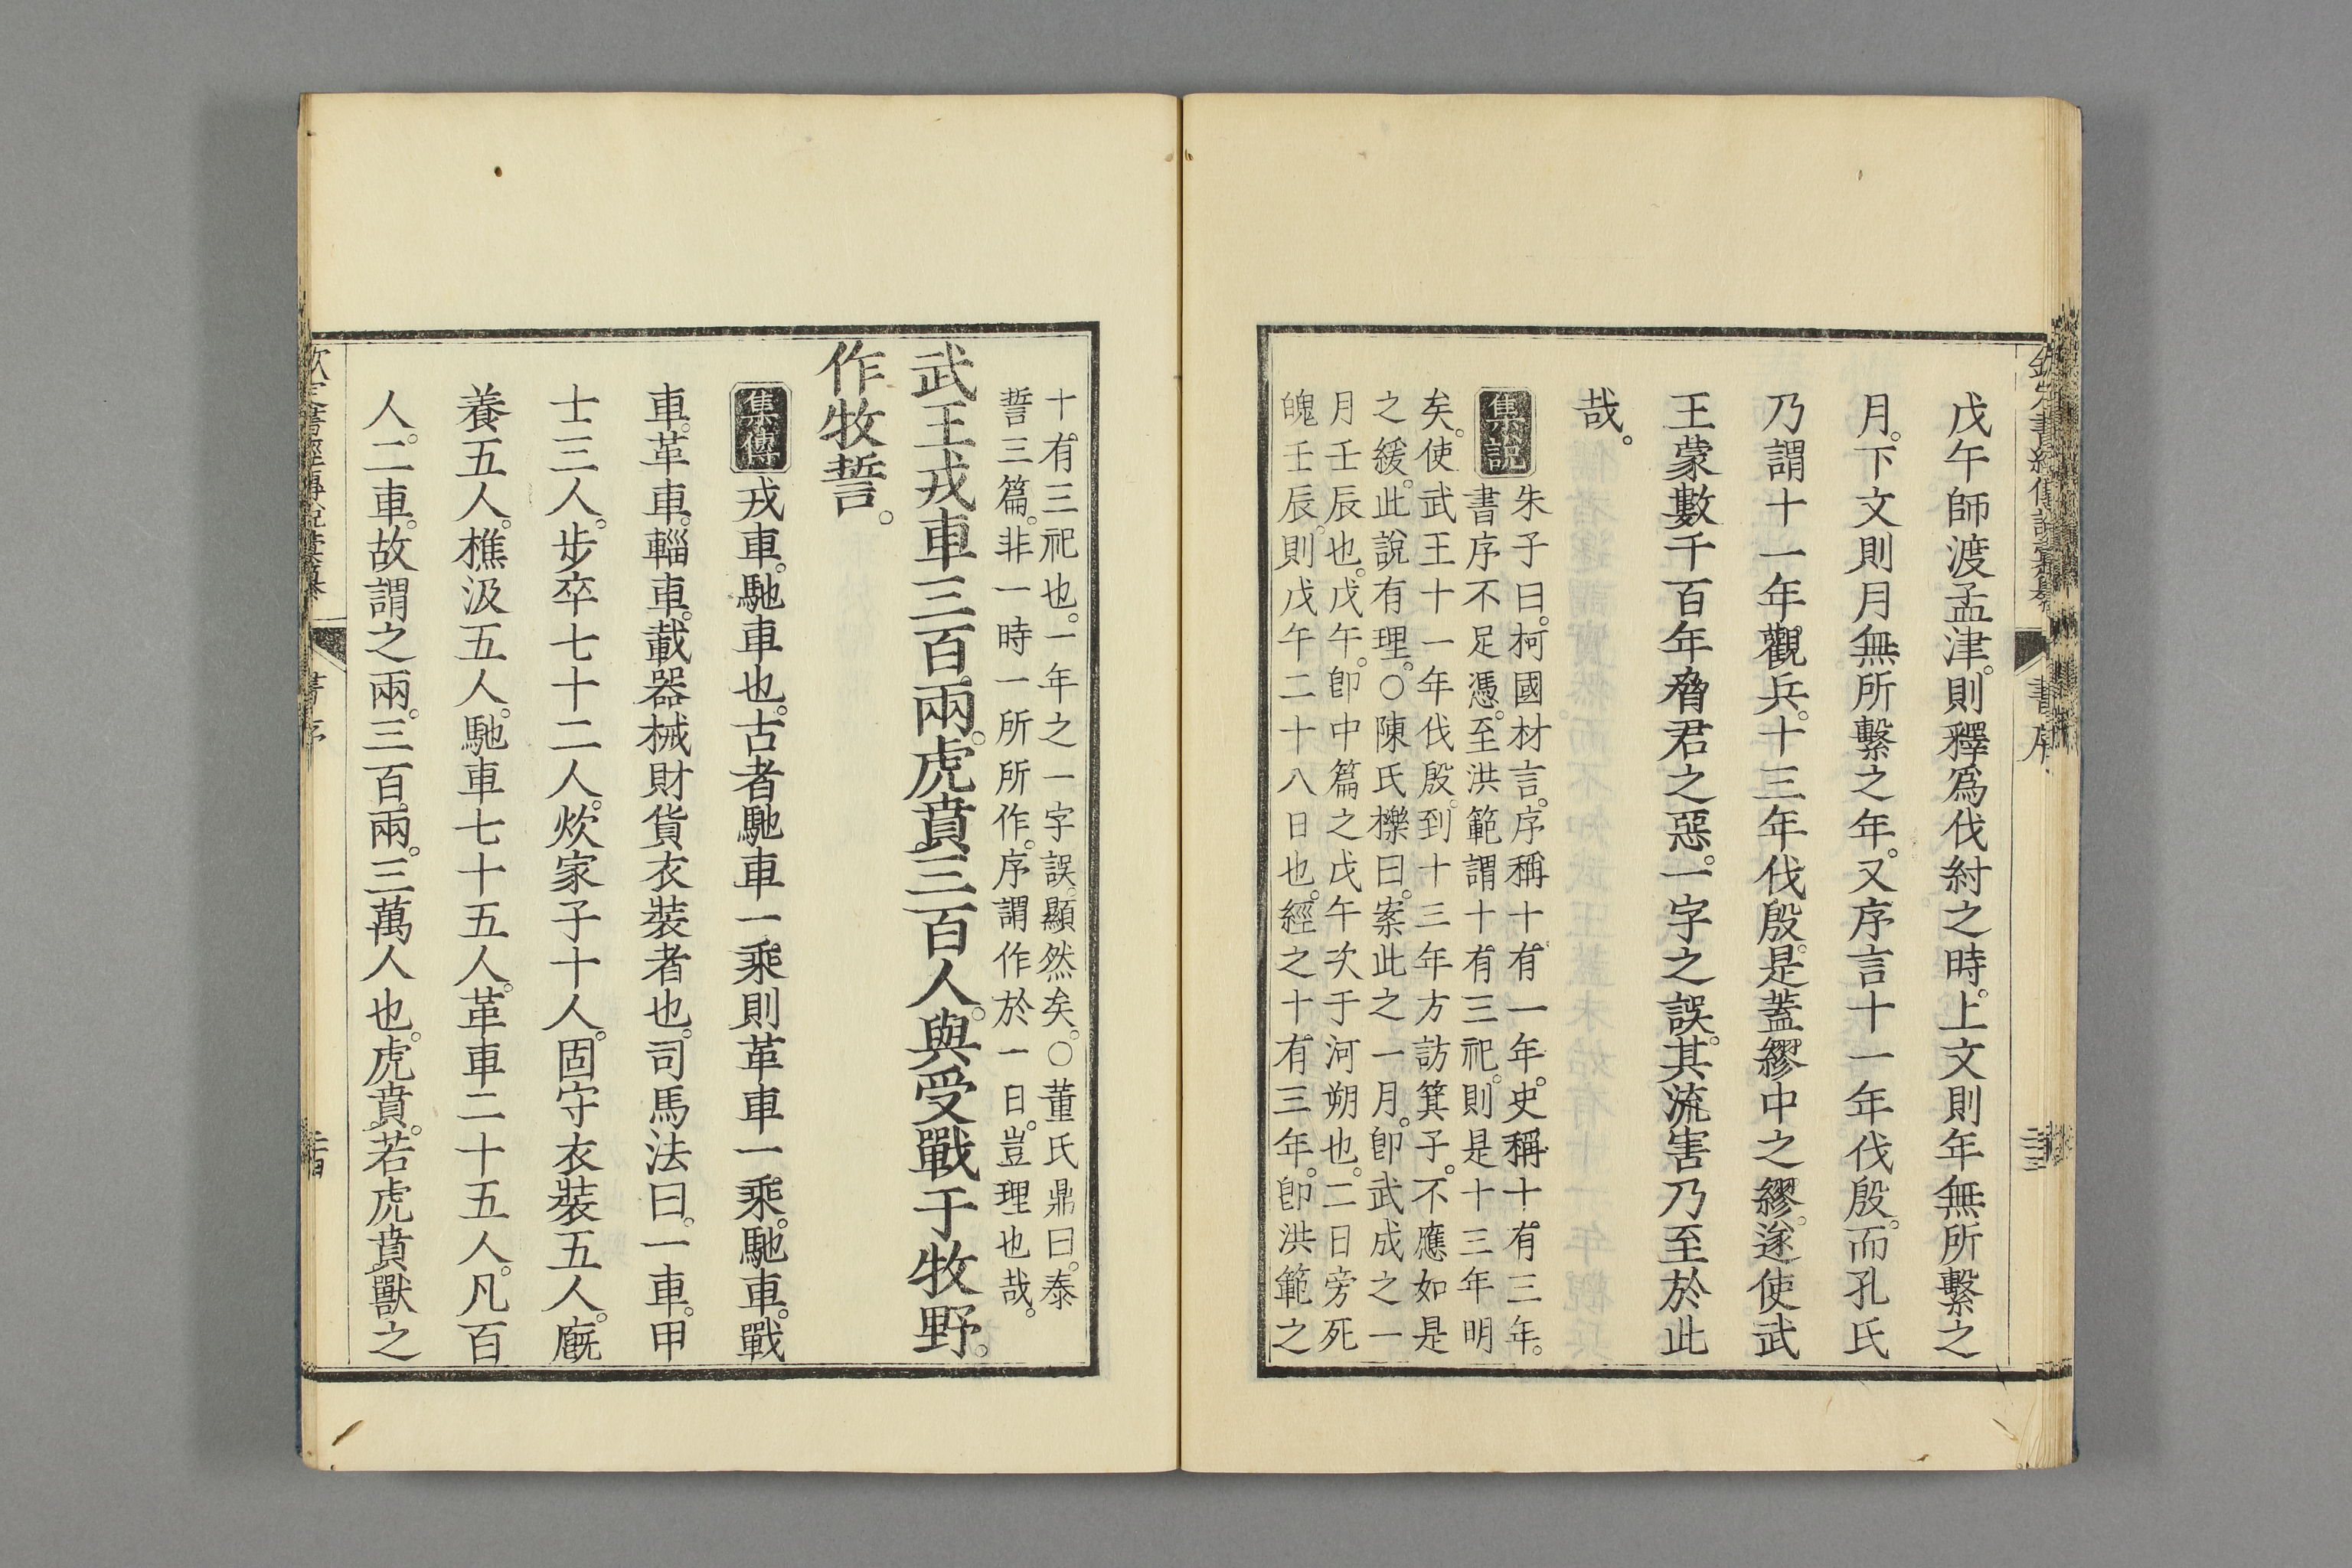 欽定書經傳說彙纂 書序
戊午師渡孟津。則釋爲伐紂之時。上文則年無所繫之
月。下文則月無所繫之年。又序言十一年伐殷。而孔氏
乃謂十一年觀兵。十三年伐殷。是蓋繆中之繆。遂使武
王蒙數千百年脅君之惡。一字之誤。其流害乃至於此
哉。
集說 朱子曰。柯國材言。序稱十有一年。史稱十有三年。
書序不足憑。至洪範謂十有三祀。則是十三年明
矣。使武王十一年伐殷。到十三年方訪箕子。不應如是
之緩。此說有理。○陳氏櫟曰。案此之一月。卽武成之一
月壬辰也。戊午。卽中篇之戊午次于河朔也。二日旁死
魄壬辰。則戊午二十八日也。經之十有三年。卽洪範之
十有三祀也。一年之一字誤。顯然矣。○董氏鼎曰。泰
誓三篇。非一時一所所作。序謂作於一日。豈理也哉。
武王戎車三百兩。虎賁三百人。與受戰于牧野。
作牧誓。
集傳 戎車。馳車也。古者馳車一乘則革車一乘。馳車。戰
車。革車。輜車。載器械財貨衣裝者也。司馬法曰。一車。甲
士三人。步卒七十二人。炊家子十人。固守衣裝五人。廐
養五人。樵汲五人。馳車七十五人。革車二十五人。凡百
人。二車。故謂之兩。三百兩。三萬人也。虎賁。若虎賁獸之